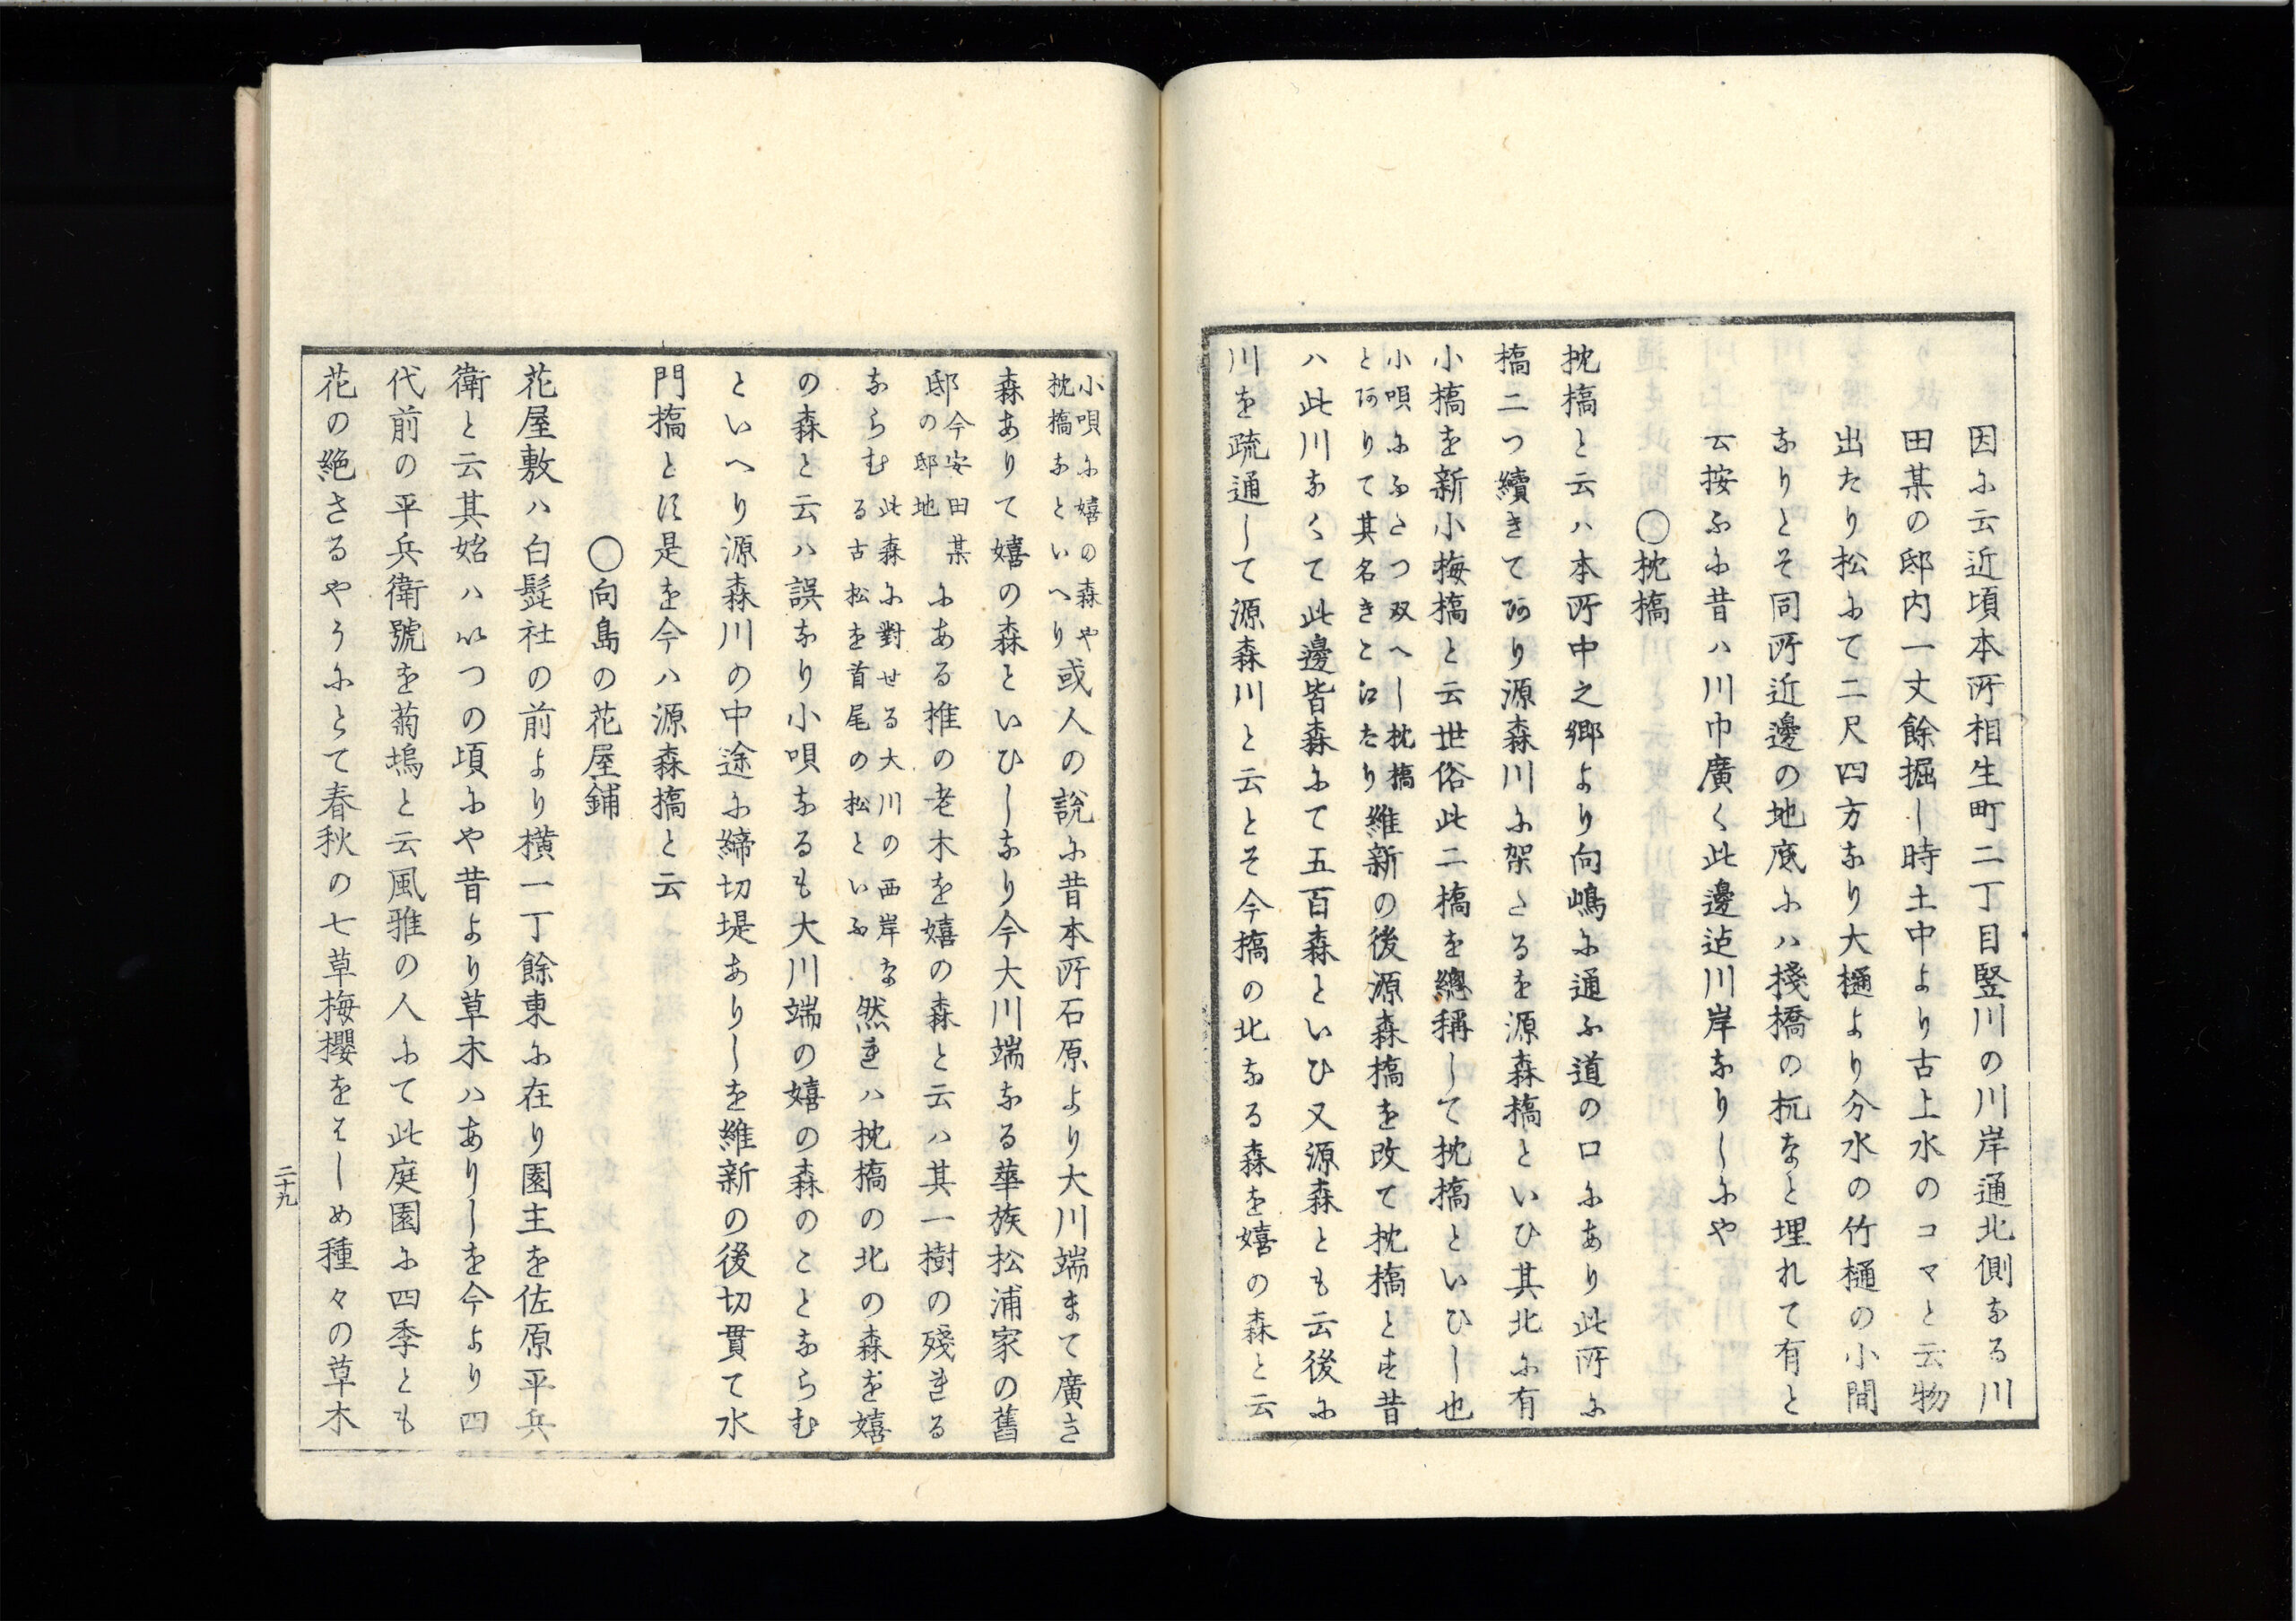 因に云近頃本所相生町二丁目竪川の川岸通北側なる川
田某の邸内一丈餘掘し時土中より古上水のコマと云物
出たり松にて二尺四方なり大樋より分水の竹樋の小間
なりとそ同所近邊の地底にハ棧橋の杭なと埋れて有と
云按ふに昔ハ川巾廣く此邊迠川岸なりしにや
○枕橋
枕橋と云ハ本所中之郷より向嶋に通ふ道の口にあり此所に
橋二つ續きて阿り源森川に架さるを源森橋といひ其北に有
小橋を新小梅橋と云世俗此二橋を總稱して枕橋といひし也
小唄にふさつ双へし枕橋
と阿りて其名きこ江たり維新の後源森橋を改て枕橋とす昔
ハ此川なくて此邊皆森にて五百森といひ又源森とも云後に
川を疏通して源森川と云とそ今橋の北なる森を嬉の森と云
小唄に嬉の森や
枕橋なといへり或人の說に昔本所石原より大川端まて廣き
森ありて嬉の森といひしなり今大川端なる華族松浦家の舊
邸今安田某
の邸地にある椎の老木を嬉の森と云ハ其一樹の殘れる
ならむ此森に對せる大川の西岸な
る古松を首尾の松といふ然れハ枕橋の北の森を嬉
の森と云ハ誤なり小唄なるも大川端の嬉の森のことならむ
といへり源森川の中途に締切堤ありしを維新の後切貫て水
門橋とす是を今ハ源森橋と云
○向島の花屋鋪
花屋敷ハ白髭社の前より橫一丁餘東に在り園主を佐原平兵
衛と云其始ハいつの頃にや昔より草木ハありしを今より四
代前の平兵衛號を菊塢と云風雅の人にて此庭園に四季とも
花の絶さるやうにとて春秋の七草梅櫻をはしめ種々の草木
二十九